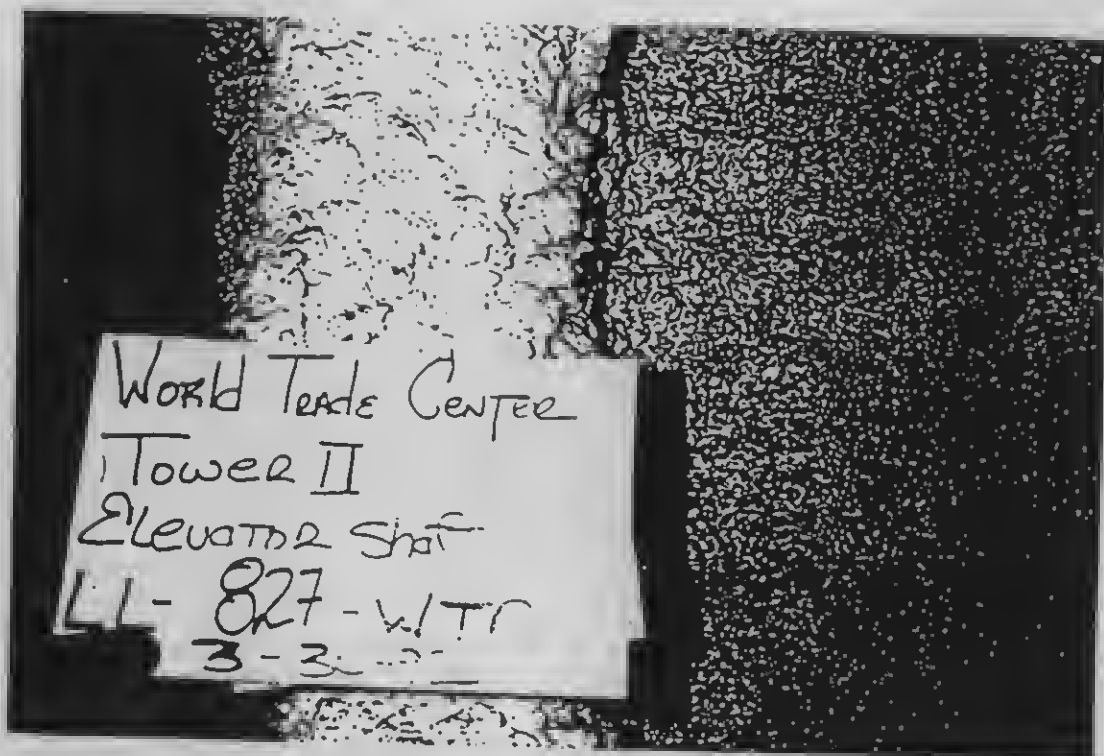 World Trade Center
Tower II
Elevator Shaf
827 - WTC
3 - 3